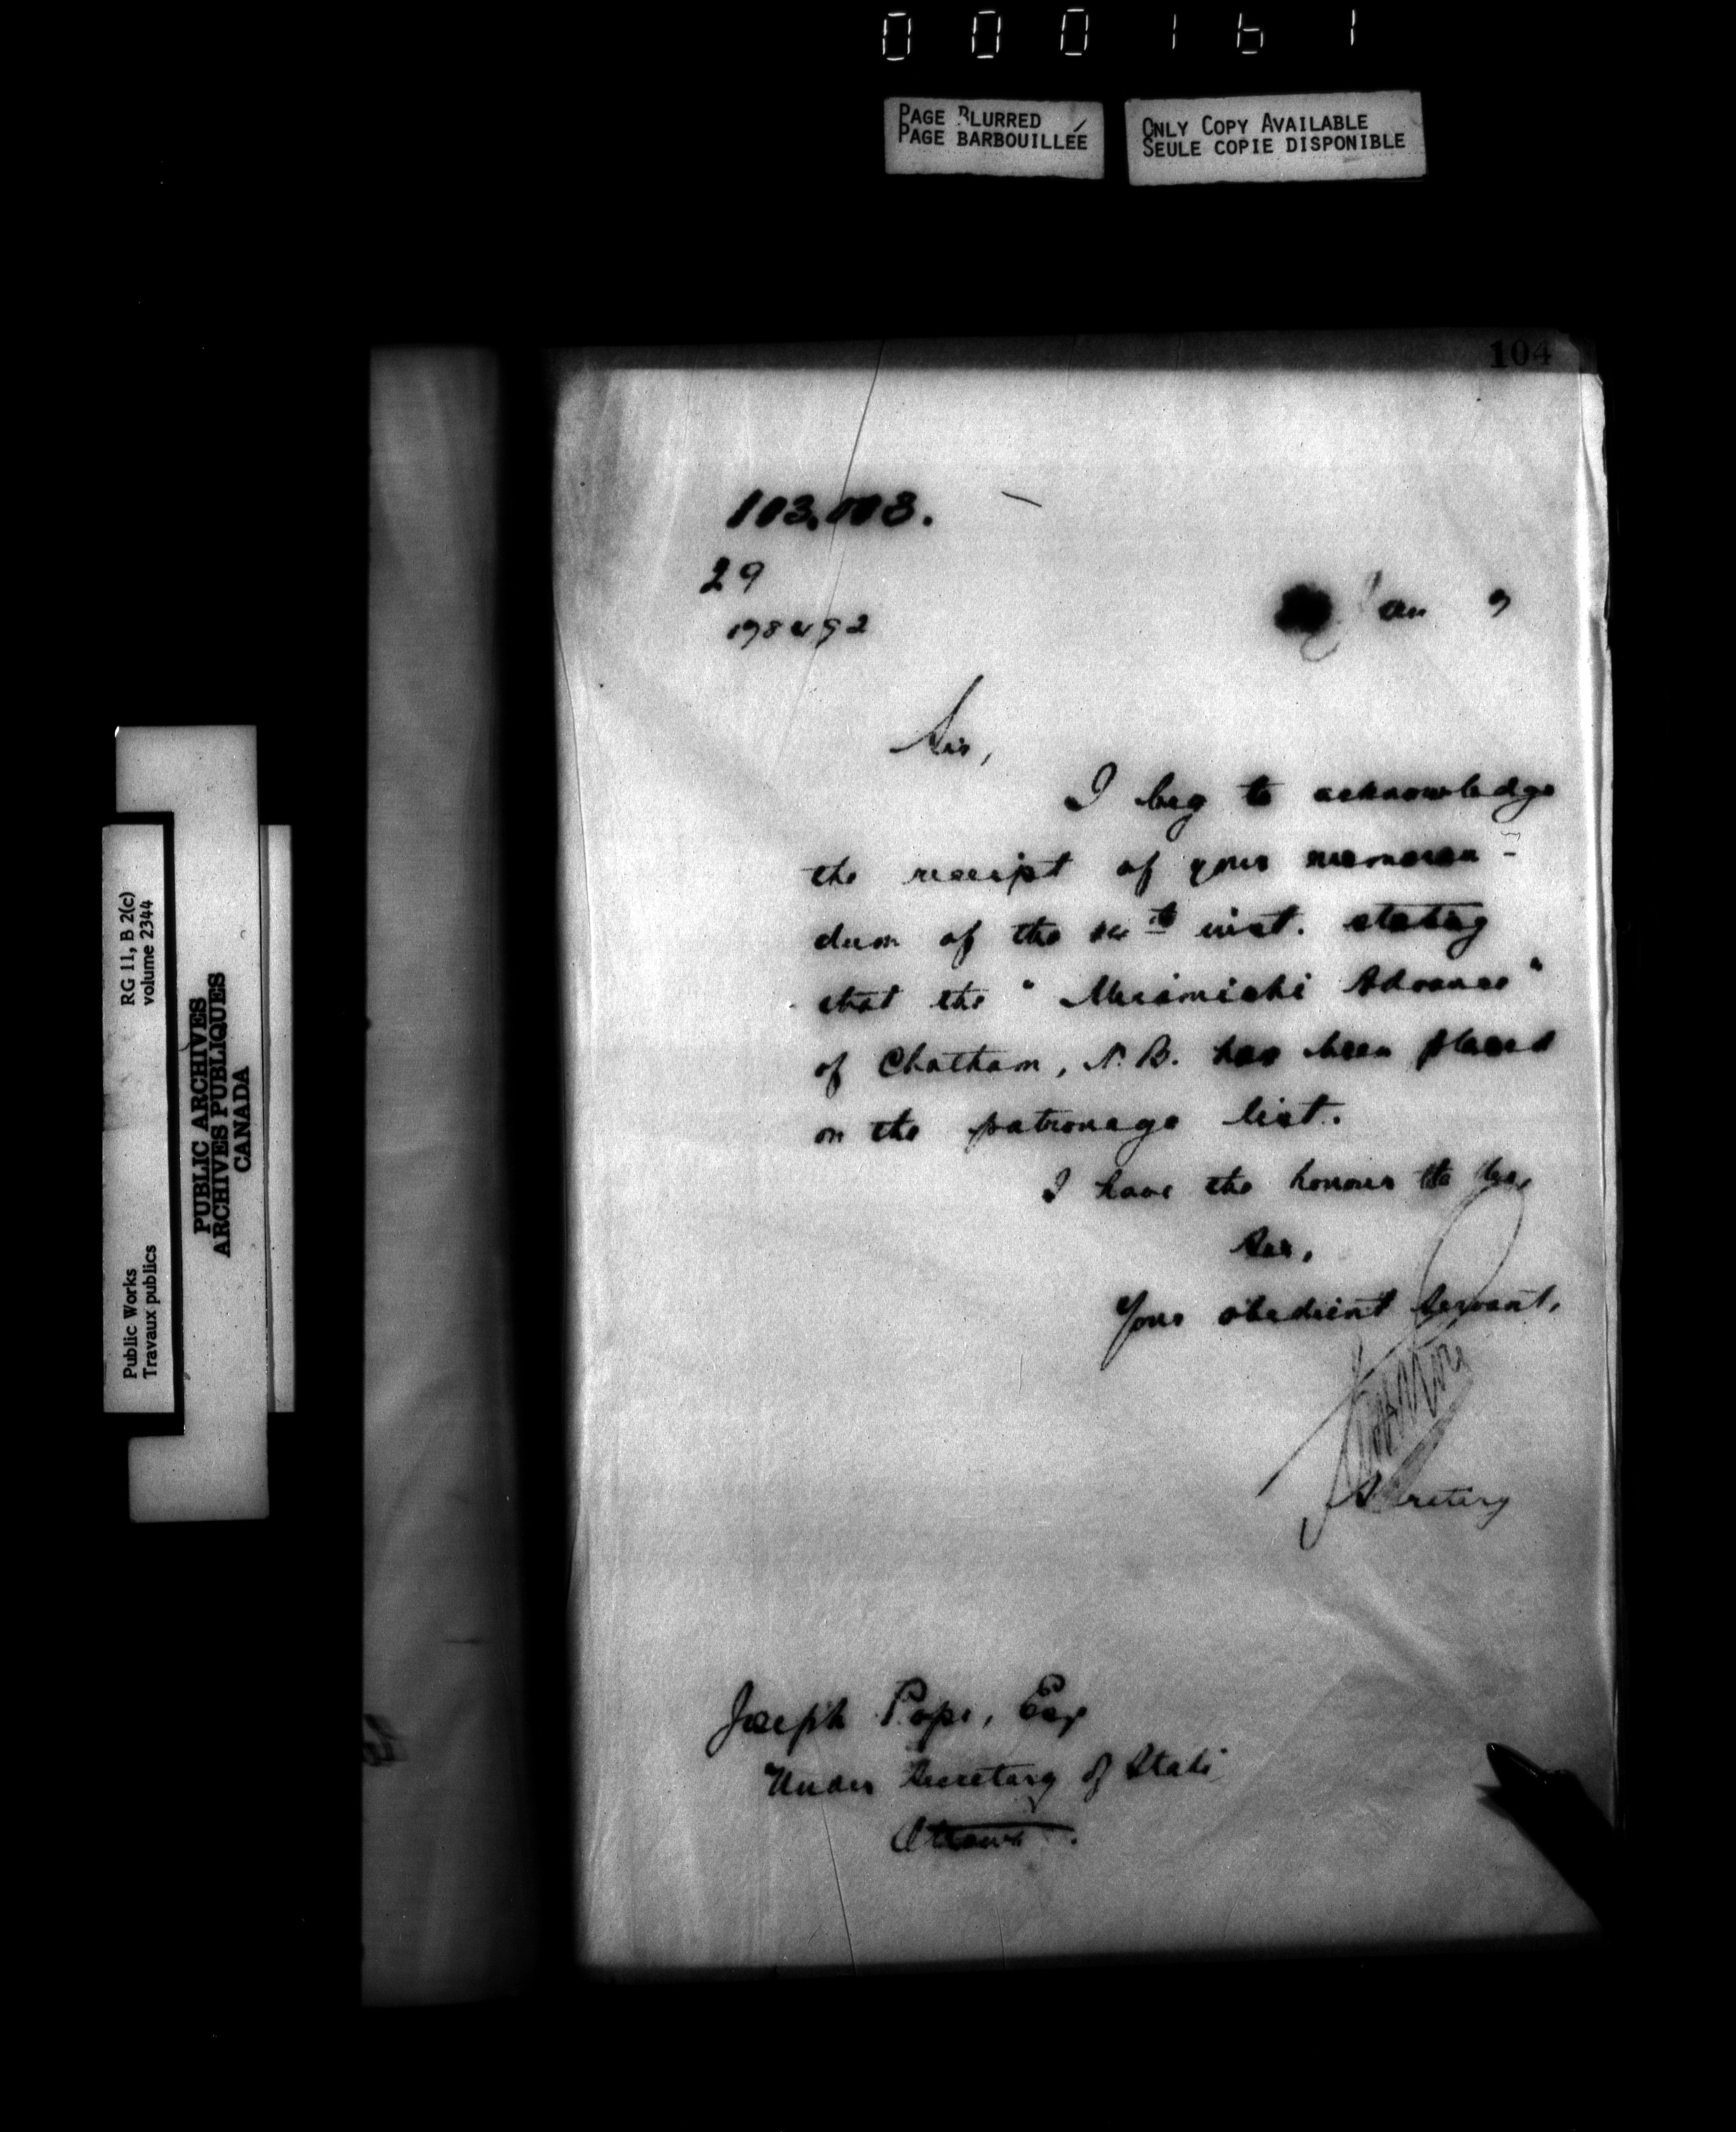 000161
PAGE BLURRED
PAGE BARBOUILLÉE
ONLY COPY AVAILABLE
SEULE COPIE DISPONIBLE
104
29
Jan 9
Sir,
I beg to acknowledge
the receipt of your memoran-
dum of the inst. stating
that the "Miramichi Advance"
of Chatham, N.B. has been placed
on the patronage list.
I have the honour to be,
Sir,
Your obedient servant,
Secretary
Joseph Pope, Esq
Under Secretary of State
Ottawa.
RG 11, B 2(c)
volume 2344
Public Works
Travaux publics
PUBLIC ARCHIVES
ARCHIVES PUBLIQUES
CANADA